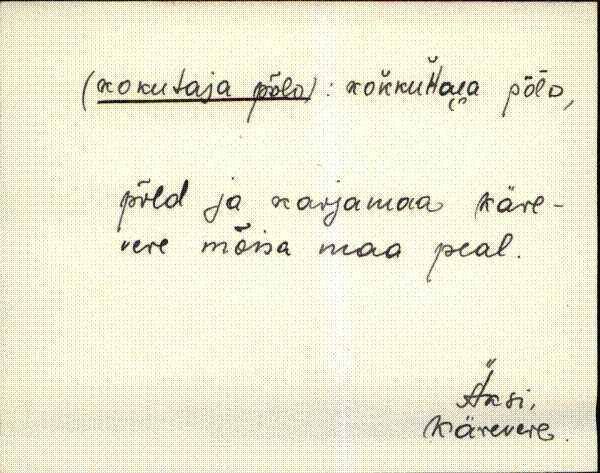 (kokutaja põld): kokkuttai̯a põld,
põld ja karjamaa Käre-
vere mõisa maa peal.
Äksi,
Kärevere.